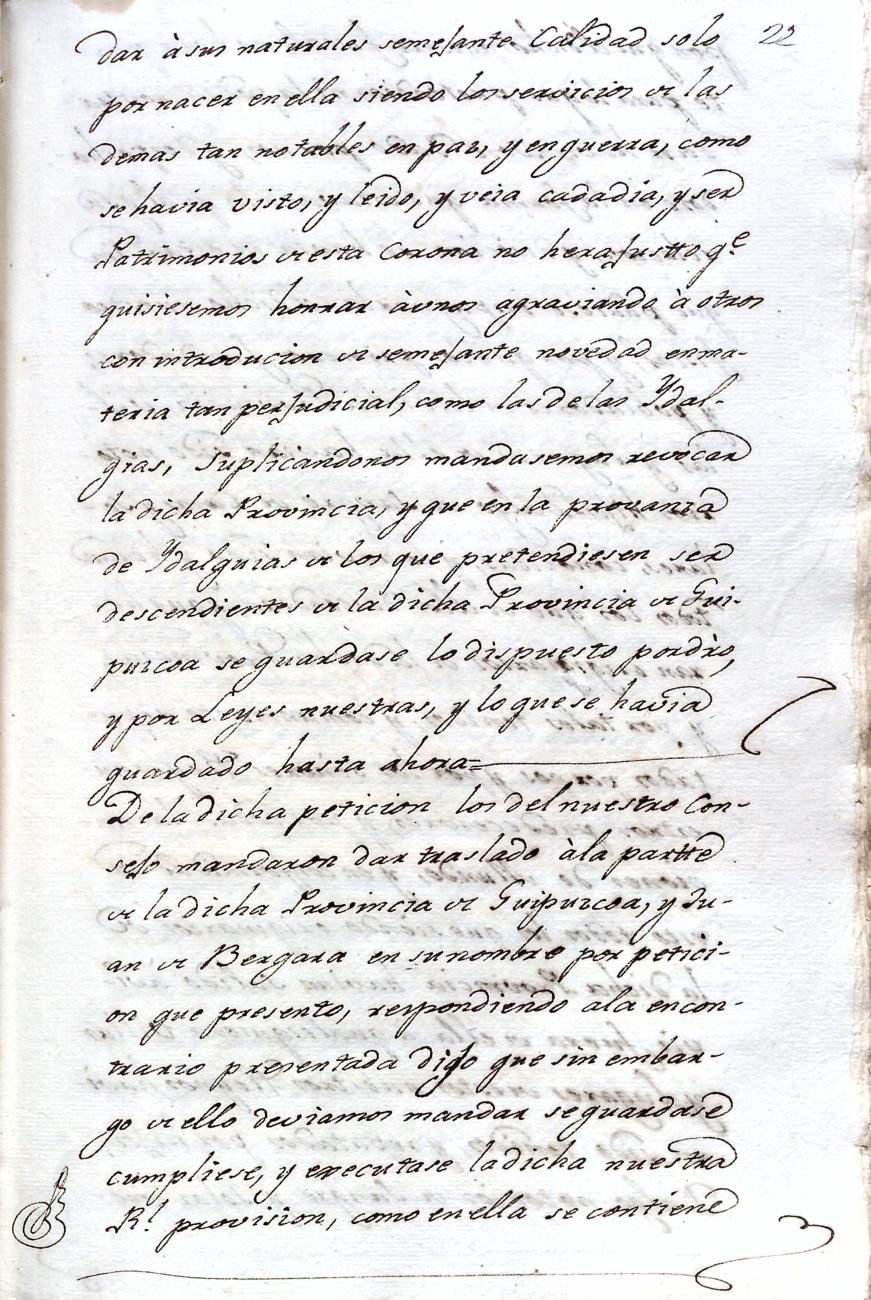 22
dar à sus naturales semejante Calidad solo
por nacer en ella siendo los servicios de las
demas tan notables en paz, y en guerra, como
se havia visto, y leido, y veia cada dia, y ser
Patrimonios de esta Corona no hera justto q.e
quisiesemos honrar à unos agraviando à otros
con introducion de semejante novedad en ma-
teria tan perjudicial, como las de las Ydal-
gias, suplicandonos mandasemos revocar
la dicha Provincia, y que en la provanza
de Ydalguias de los que pretendiesen ser
descendientes de la dicha Provincia de Gui-
puzcoa se guardase lo dispuesto por dro,
y por Leyes nuestras, y lo que se havia
guardado hasta ahora=
De la dicha peticion los del nuestro Con-
sejo mandaron dar traslado à la partte
de la dicha Provincia de Guipuzcoa, y Ju-
an de Bergara en su nombre por petici-
on que presento, respondiendo a la en con-
trario presentada dijo que sin embar-
go de ello deviamos mandar se guardase
cumpliese, y executase la dicha nuestra
R.l provision, como en ella se contiene